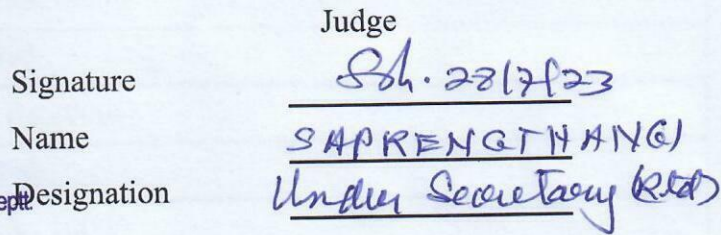 Judge
Signature Sdh. 28/7/23
Name SAPRENGTHANGI
eptt. Designation Under Secretary (Rtd)